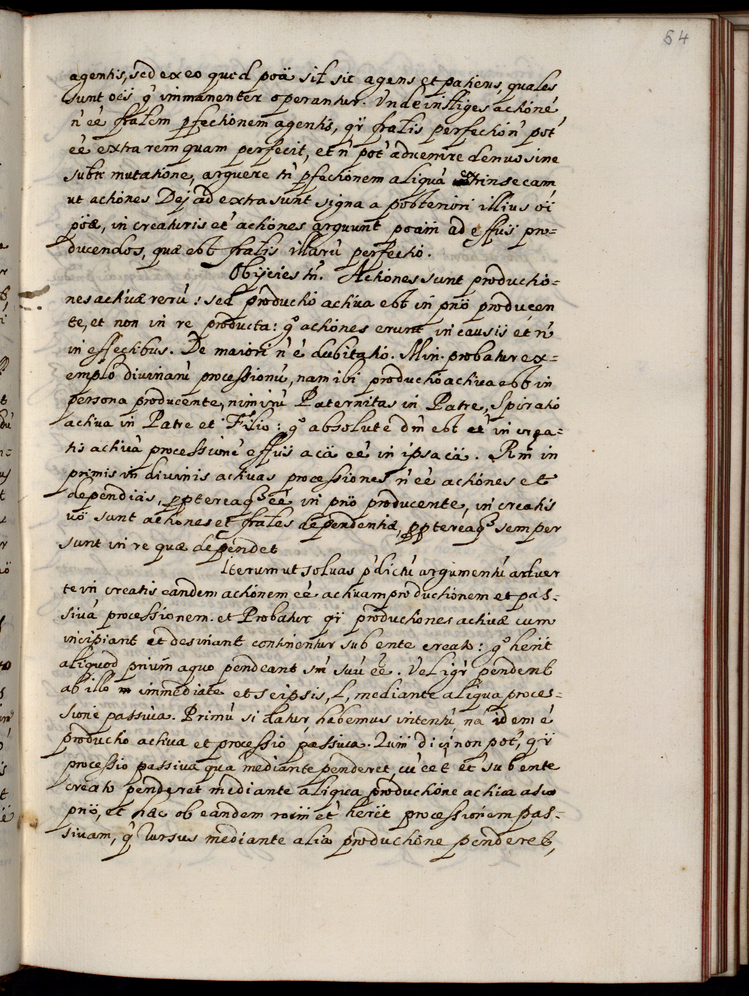 64
agentis, sed ex eo quod poä sit sit agens et patiens, quales
sunt oës q' immanenter operantur. Unde infliges actionē
n' eē fralem pfectionem agentis, qr̄ fralis perfectio n' pōt
eē extra rem quam perficit, et n' pōt advenire denuo sine
subti mutatione, arguere tn̄ pfectionem aliquā intrinsecam
ut actiones Dei ad extra sunt signa a posteriori illius oi
poæ, in creaturis et' actiones arguunt poam ad effūs pro=
ducendos, quæ est fralis illarū perfectio.
Obijcies tn̄. Actiones sunt productio=
nes activæ rerū: sed productio activa est in pnō producen
te, et non in re producta: gº actiones erunt in causis et n'
in effectibus. De maiori n' ē dubitatio. Min. probatur ex=
emplo divinarū processionū, nam ibi productio activa est in
persona producente, nimirū Paternitas in Patre, Spiratio
activa in Patre et Filio: gº absolute dm̄ est et' in crea=
tis activā processionē effūs a cā eē in ipsa cā. Rm̄ in
primis in divinis activas processiones n' eē actiones et
dependias, ppterea qº eē in pnō producente, in creatis
vō sunt actiones et frales dependentiæ, ppterea qº semper
sunt in re quæ dependet
Iterum ut solvas p'dictū argumentū adver
te in creatis eandem actionem eē activam productionem et pas=
sivā processionem. et Probatur qr̄ productiones activæ cum
incipiant et desinant continentur sub ente creato: gº herit
aliquod prium a quo pendeant sm̄ suū eē. Vel igr̄ pendent
ab illo immediate et seipsis, l, mediante aliqua proces=
sione passiva. Primū si datur, habemus intentū nā idem ē
productio activa et processio passiva. 2um dici non pōt, qr̄
processio passiva qua mediante penderet, cū eēt et' sub ente
creato penderet mediante aliqua productione activa a suo
pnō, et hæc ob eandem roēm et' heret processionem pas=
sivam, q' rursus mediante alia productione penderet,